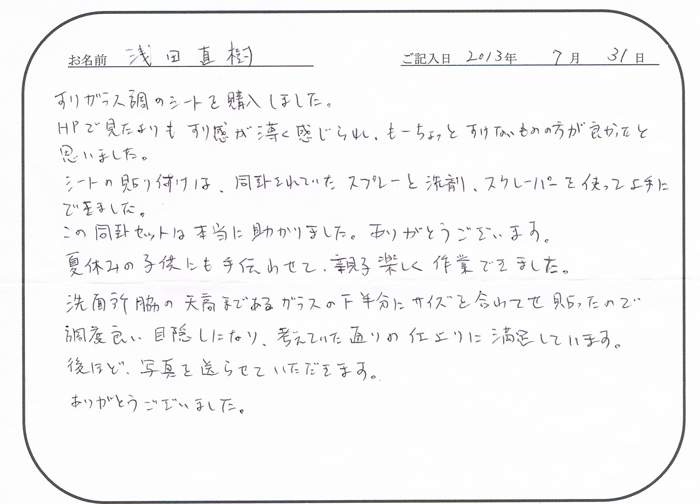 お名前 浅田直樹 ご記入日 2013年 7月 31日
すりガラス調のシートを購入しました。
HPで見たよりも すり感が薄く感じられ、もーちょっと すけないものの方が良かったと
思いました。
シートの貼り付けは、同封されていた スプレーと洗剤、スクレーパーを使って上手に
できました。
この同封セットは本当に助かりました。ありがとうございます。
夏休みの子供にも手伝わせて、親子楽しく作業できました。
洗面所脇の天高まであるガラスの下半分にサイズを合わてせ貼ったので
調度良い目隠しになり、考えていた通りの仕上りに満足しています。
後ほど、写真を送らせていただきます。
ありがとうございました。